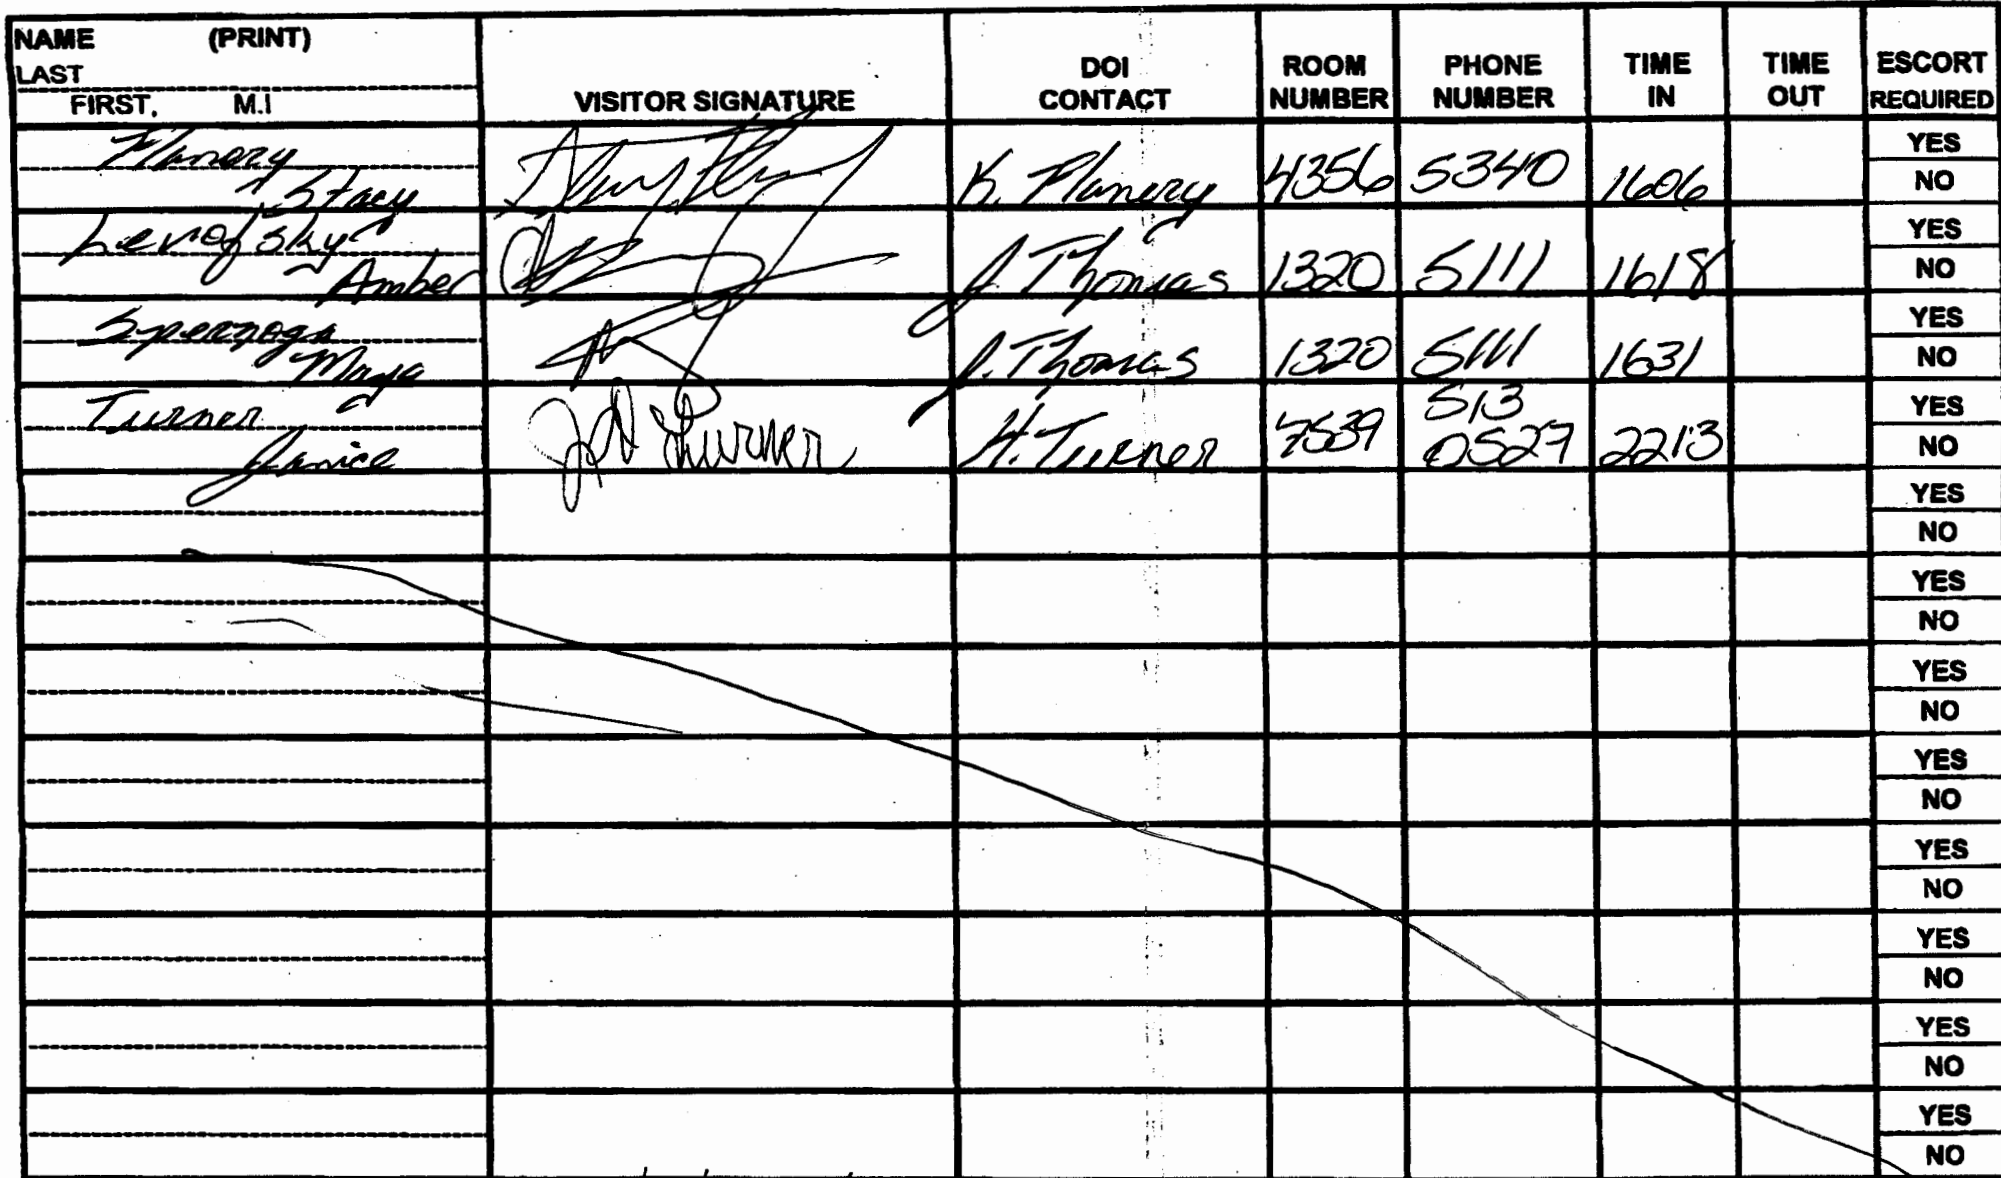 NAME (PRINT)
LAST
FIRST. M.I
VISITOR SIGNATURE
DOI
CONTACT
ROOM
NUMBER
PHONE
NUMBER
TIME
IN
TIME
OUT
ESCORT
REQUIRED
Flanery
Stacy
K. Flanery 4356 5340 1606
YES
NO
Levofsky
Amber
J. Thomas 1320 5111 1618
YES
NO
Maya
J. Thomas 1320 5111 1631
YES
NO
Turner
Janice
Turner
H. Turner 7539
513
0527
2213
YES
NO
YES
NO
YES
NO
YES
NO
YES
NO
YES
NO
YES
NO
YES
NO
YES
NO